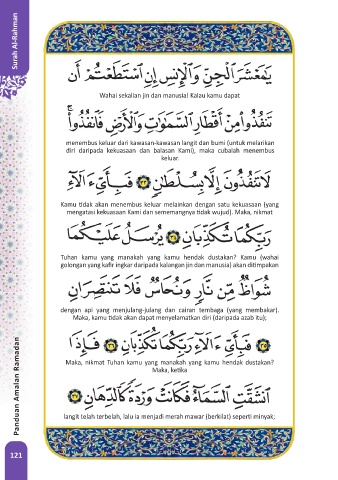 Surah Al-Rahman
يَـٰمَعْشَرَ ٱلْجِنِّ وَٱلْإِنسِ إِنِ ٱسْتَطَعْتُمْ أَن
Wahai sekalian jin dan manusia! Kalau kamu dapat
تَنفُذُوا۟ مِنْ أَقْطَارِ ٱلسَّمَـٰوَٰتِ وَٱلْأَرْضِ فَٱنفُذُوا۟ۚ
menembus keluar dari kawasan-kawasan langit dan bumi (untuk melarikan
diri daripada kekuasaan dan balasan Kami), maka cubalah menembus
keluar.
لَا تَنفُذُونَ إِلَّا بِسُلْطَـٰنٍ ٣٣ فَبِأَىِّ ءَالَآءِ
Kamu tidak akan menembus keluar melainkan dengan satu kekuasaan (yang
mengatasi kekuasaan Kami dan sememangnya tidak wujud). Maka, nikmat
رَبِّكُمَا تُكَذِّبَانِ ٣٤ يُرْسَلُ عَلَيْكُمَا
Tuhan kamu yang manakah yang kamu hendak dustakan? Kamu (wahai
golongan yang kafir ingkar daripada kalangan jin dan manusia) akan ditimpakan
شُوَاظٌ مِّن نَّارٍ وَنُحَاسٌ فَلَا تَنتَصِرَانِ
dengan api yang menjulang-julang dan cairan tembaga (yang membakar).
Maka, kamu tidak akan dapat menyelamatkan diri (daripada azab itu);
٣٥ فَبِأَىِّ ءَالَآءِ رَبِّكُمَا تُكَذِّبَانِ ٣٦ فَإِذَا
Maka, nikmat Tuhan kamu yang manakah yang kamu hendak dustakan?
Maka, ketika
ٱنشَقَّتِ ٱلسَّمَآءُ فَكَانَتْ وَرْدَةً كَٱلدِّهَانِ ٣٧
langit telah terbelah, lalu ia menjadi merah mawar (berkilat) seperti minyak;
Panduan Amalan Ramadan
121